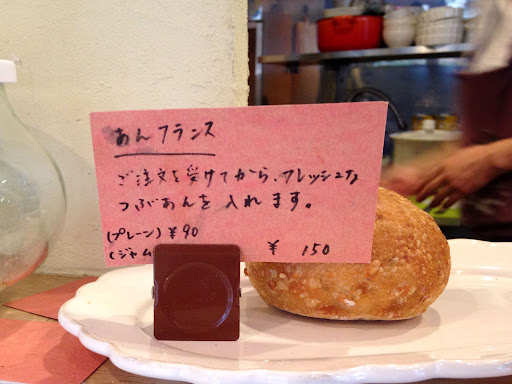 あんフランス
ご注文を受けてから、フレッシュな
つぶあんを入れます。
(プレーン) ¥90
(ジャム ¥ 150